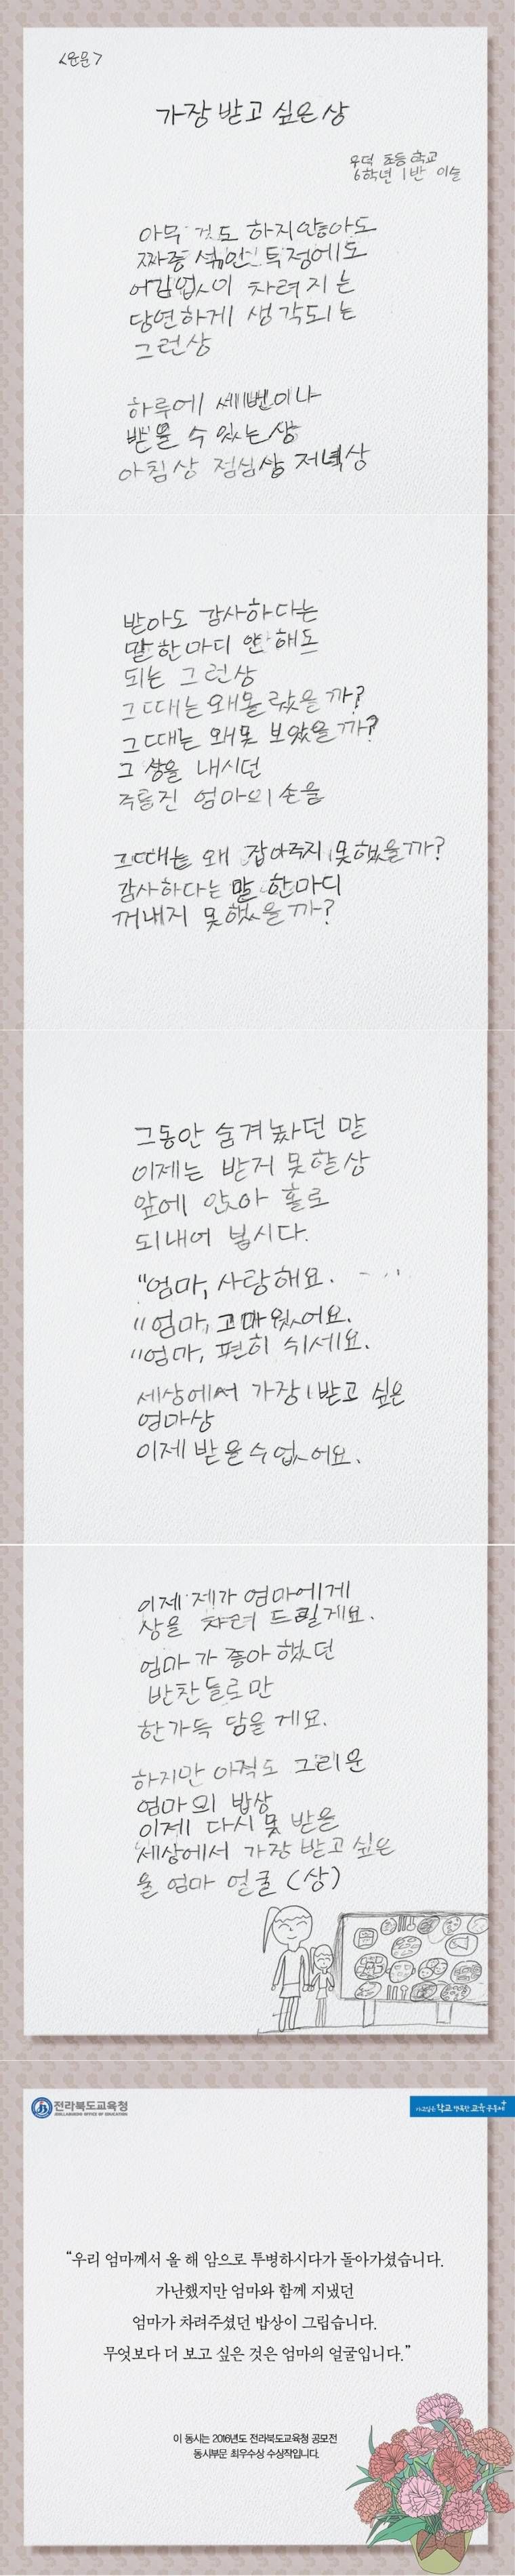 <운문>
가장 받고 싶은 상
우덕 초등학교
6학년 1반 이슬
아무 것도 하지않아도
짜증 섞인 투정에도
어김없이 차려지는
당연하게 생각되는
그런상
하루에 세번이나
받을 수 있는상
아침상 점심상 저녁상
받아도 감사하다는
말 한마디 안 해도
되는 그런상
그때는 왜몰랐을까?
그때는 왜못 보았을까?
그 상을 내시던
주름진 엄마의 손을
그때는 왜 잡아주지 못했을까?
감사하다는 말 한마디
꺼내지 못했을까?
그동안 숨겨놨던 말
이제는 받지 못할상
앞에 앉아 홀로
되내어 봅시다.
"엄마, 사랑해요.
"엄마, 고마웠어요.
"엄마, 편히 쉬세요.
세상에서 가장 받고 싶은
엄마상
이제 받을수없어요.
이제 제가 엄마에게
상을 차려 드릴게요.
엄마가 좋아했던
반찬들로만
한가득 담을게요.
하지만 아직도 그리운
엄마의 밥상
이제 다시 못 받을
세상에서 가장 받고 싶은
울 엄마 얼굴 (상)
전라북도교육청
JEOLLABUKDO OFFICE OF EDUCATION
가고싶은 학교 행복한 교육공동체
“우리 엄마께서 올 해 암으로 투병하시다가 돌아가셨습니다.
가난했지만 엄마와 함께 지냈던
엄마가 차려주셨던 밥상이 그립습니다.
무엇보다 더 보고 싶은 것은 엄마의 얼굴입니다.”
이 동시는 2016년도 전라북도교육청 공모전
동시부문 최우수상 수상작입니다.